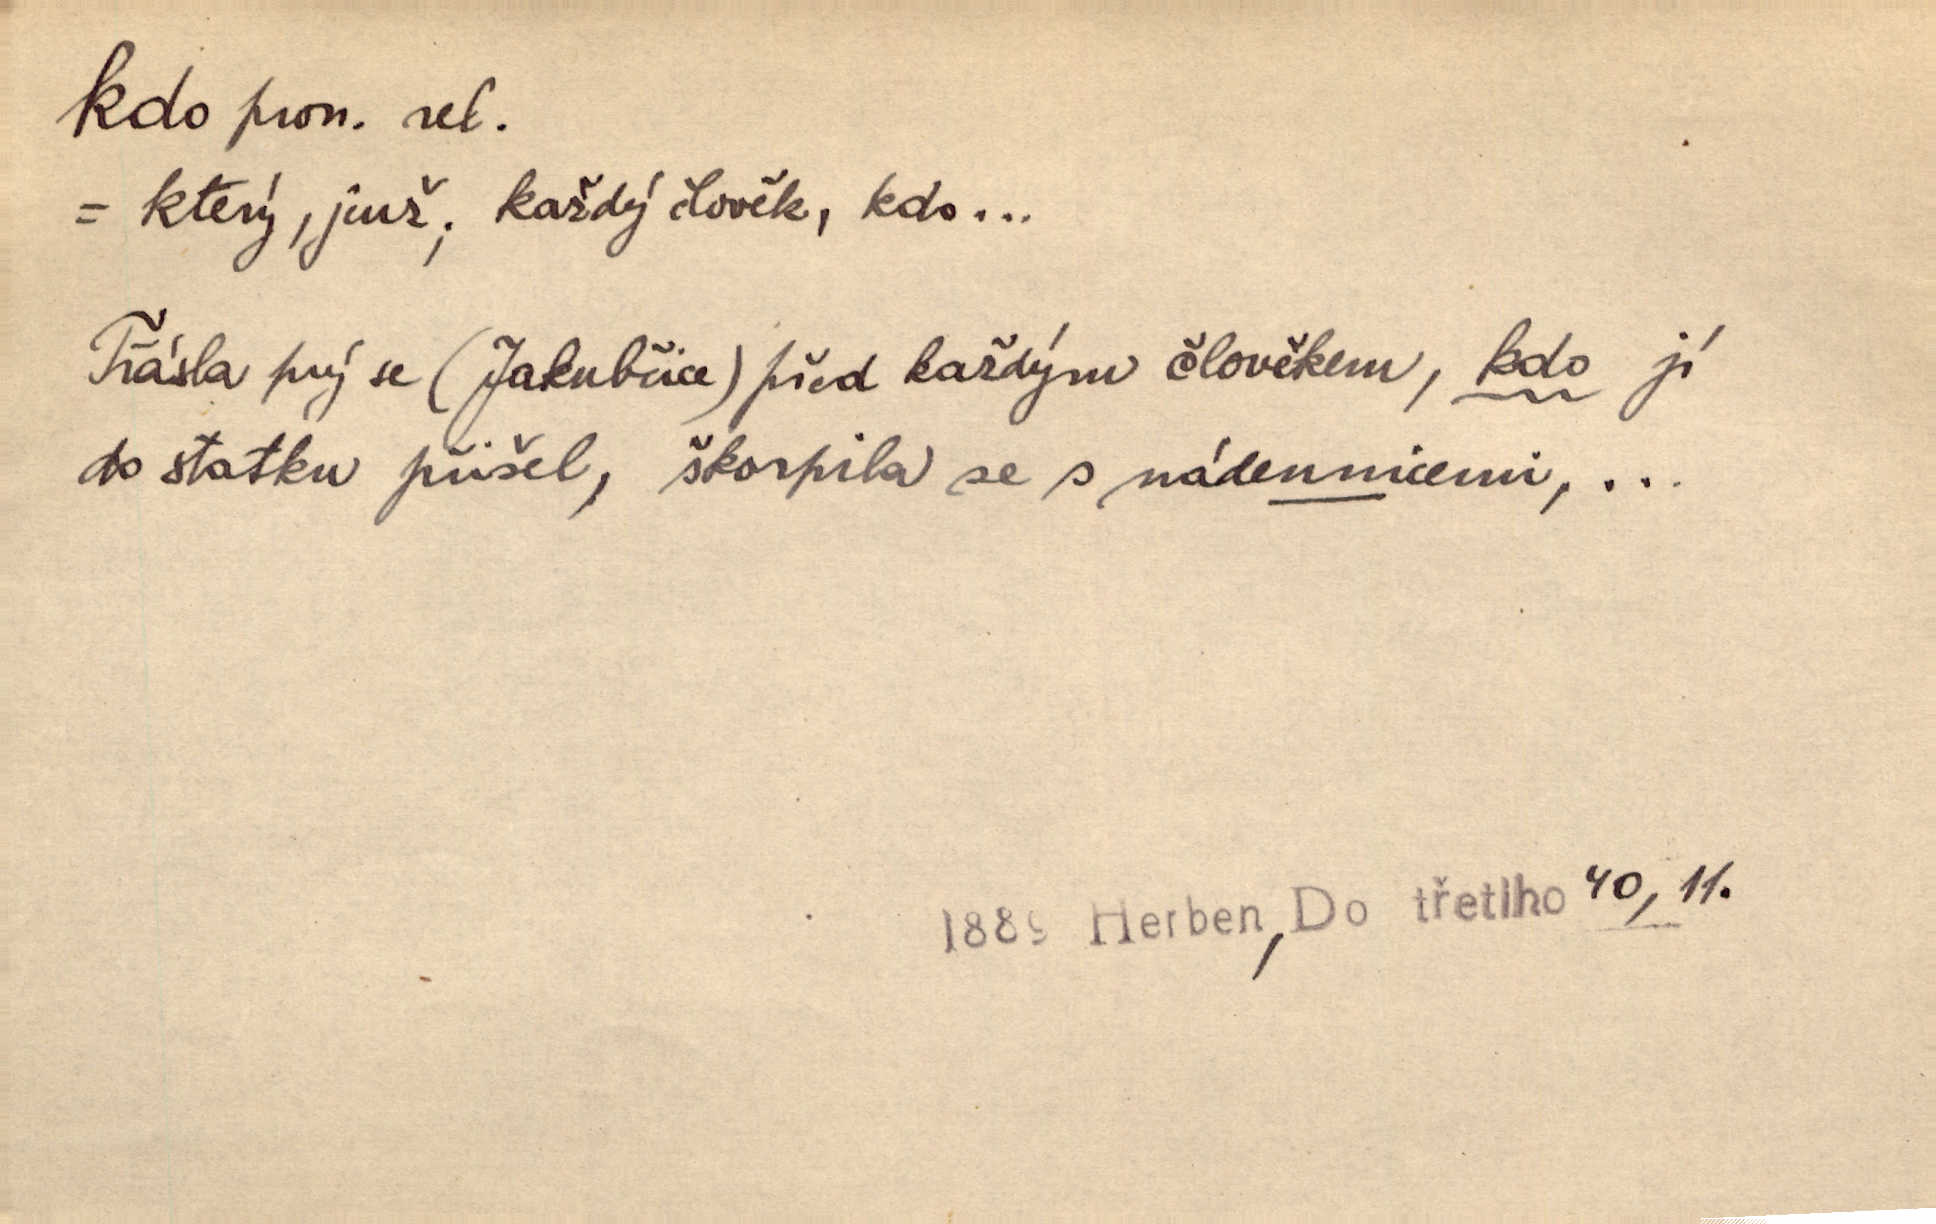 kdo pron. rel.
= který, jenž; každý člověk, kdo...
Třásla prý se (Jakubčice) před každým člověkem, kdo jí
do statku přišel, škorpila se s nádennicemi, ...
1889 Herben, Do třetího 40, 11.